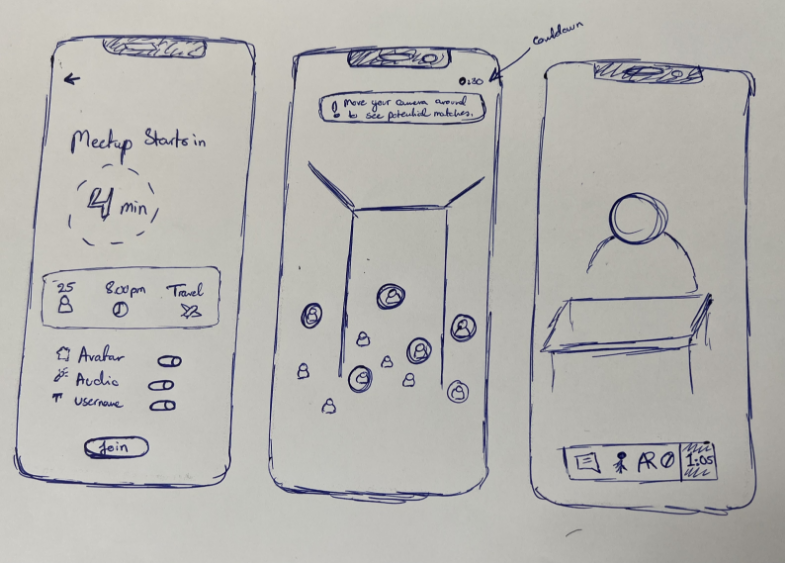 Meetup Starts in
4 min
25 8:00pm Travel
Avatar
Audio
T username
Join
coutdown
0:30
! Move your camera around
to see potential matches.
AR 1:05